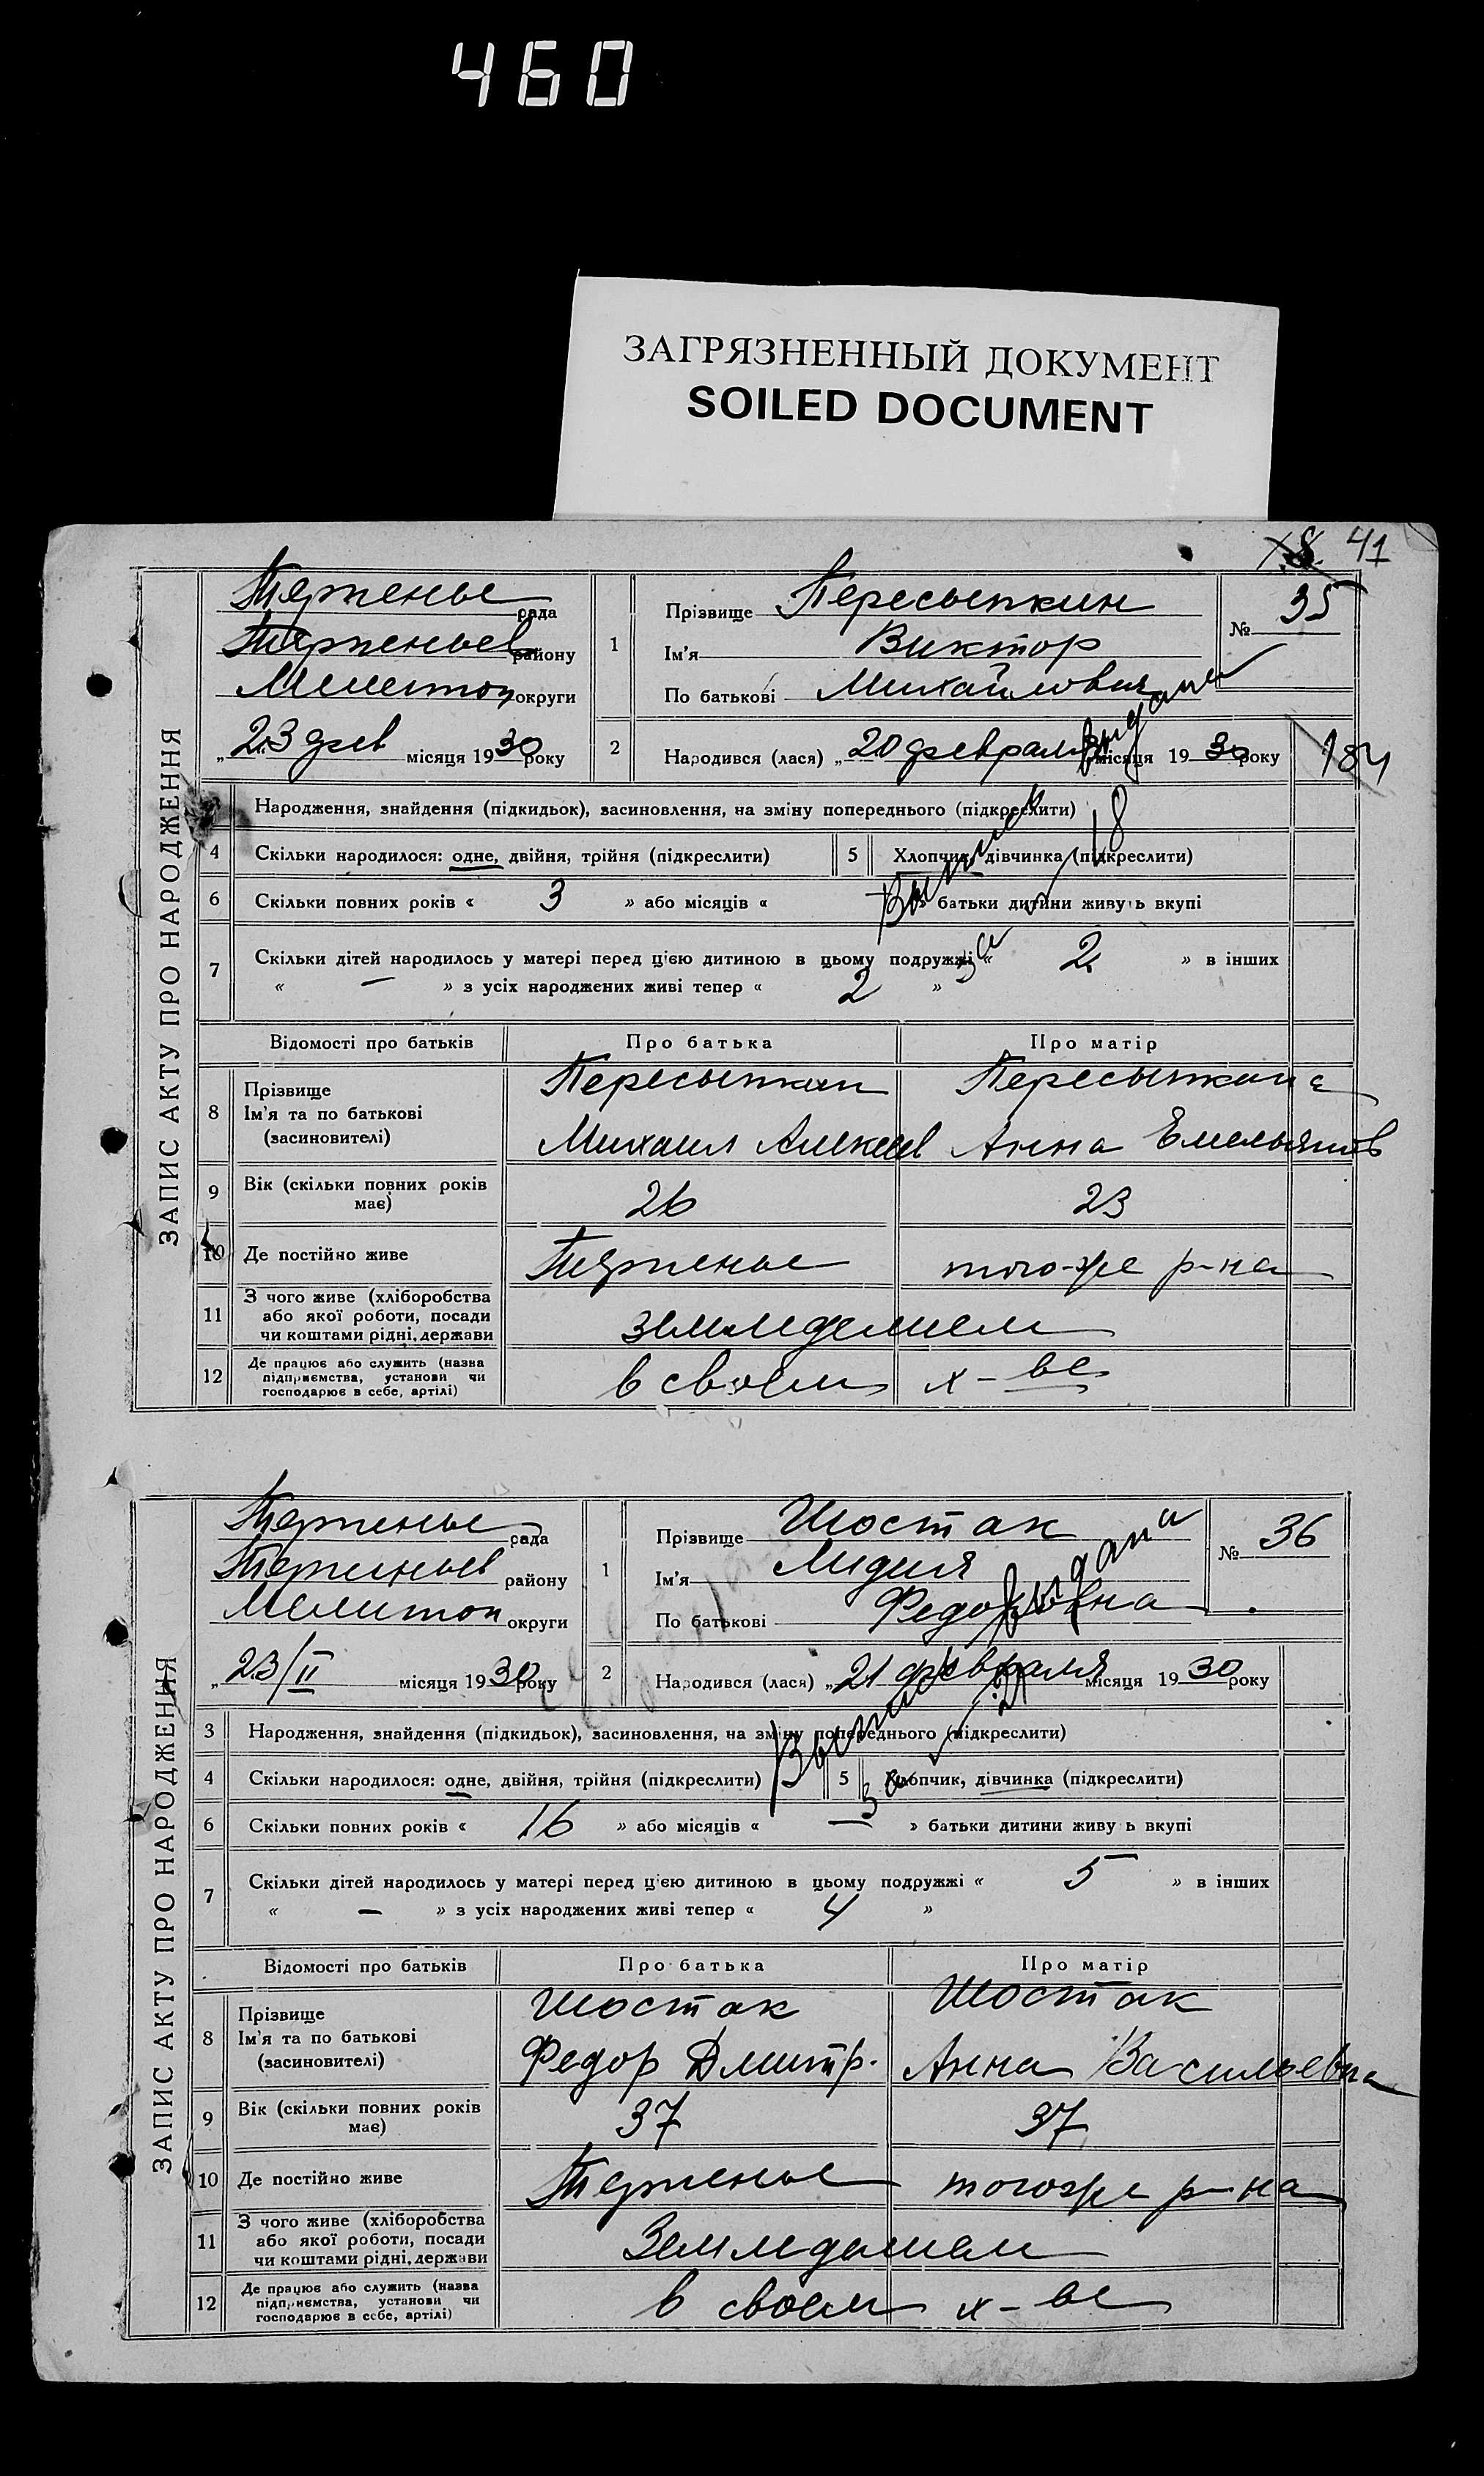 460
ЗАГРЯЗНЕННЫЙ ДОКУМЕНТ
SOILED DOCUMENT
41
ЗАПИС АКТУ ПРО НАРОДЖЕННЯ
Терпенье рада
Терпеньев району
Мелитоп округи
„23 фев місяця 1930 року
1 Прізвище Пересыпкин
Ім'я Виктор
По батькові Михайлович
№ 35
2 Народився (лася) „20 февраля місяця 1930 року
184
Народження, знайдення (підкидьок), засиновлення, на зміну попереднього (підкреслити)
4 Скільки народилося: одне, двійня, трійня (підкреслити) 5 Хлопчик, дівчинка (підкреслити)
6 Скільки повних років « 3 » або місяців « » батьки дитини живуть вкупі
7 Скільки дітей народилось у матері перед цією дитиною в цьому подружжі « 2 » в інших
« — » з усіх народжених живі тепер « 2 »
Выпись выдана
за № 18
Відомості про батьків Про батька Про матір
8 Прізвище Ім'я та по батькові (засиновителі)
Пересыпкин Пересыпкина
Михаил Алексеев Анна Емельянов
9 Вік (скільки повних років має) 26 23
10 Де постійно живе Терпенье того-же р-на
11 З чого живе (хліборобства або якої роботи, посади чи коштами рідні, держави
земледелием
12 Де працює або служить (назва підприємства, установи чи господарює в себе, артілі)
в своем х-ве
ЗАПИС АКТУ ПРО НАРОДЖЕННЯ
Терпенье рада
Терпеньев району
Мелитоп округи
„23/II місяця 1930 року
1 Прізвище Шостак
Ім'я Лидия
По батькові Федоровна
№ 36
2 Народився (лася) „21 февраля місяця 1930 року
3 Народження, знайдення (підкидьок), засиновлення, на зміну попереднього (підкреслити)
4 Скільки народилося: одне, двійня, трійня (підкреслити) 5 Хлопчик, дівчинка (підкреслити)
6 Скільки повних років « 16 » або місяців « — » батьки дитини живуть вкупі
7 Скільки дітей народилось у матері перед цією дитиною в цьому подружжі « 5 » в інших
« — » з усіх народжених живі тепер « 4 »
Выпись выдана
за
Відомості про батьків Про батька Про матір
8 Прізвище Ім'я та по батькові (засиновителі)
Шостак Шостак
Федор Дмитр. Анна Васильевна
9 Вік (скільки повних років має) 37 37
10 Де постійно живе Терпенье того же р-на
11 З чого живе (хліборобства або якої роботи, посади чи коштами рідні, держави
Земледелием
12 Де працює або служить (назва підприємства, установи чи господарює в себе, артілі)
в своем х-ве